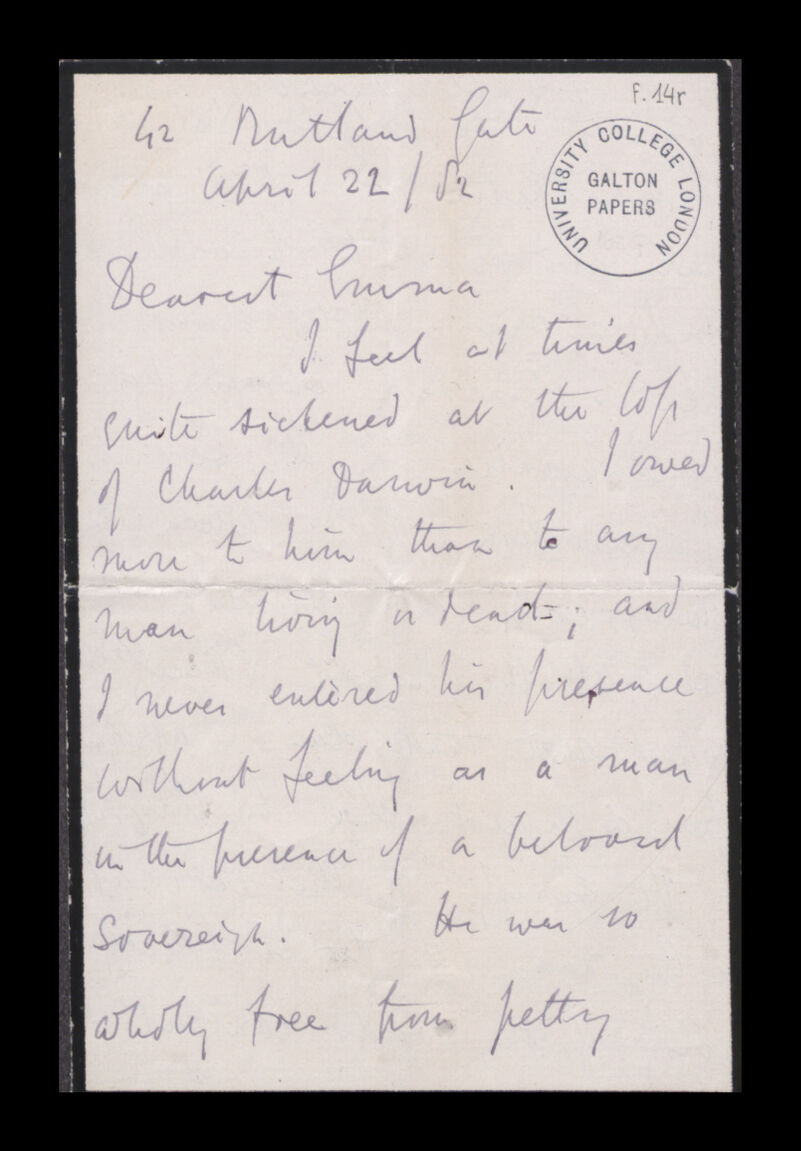 F. 14r
UNIVERSITY COLLEGE LONDON
GALTON
PAPERS
42 Rutland Gate
April 22/82
Dearest Emma
I feel at times
quite sickened at the loss
of Charles Darwin. I owed
more to him than to any
man living or dead; and
I never entered his presence
without feeling as a man
in the presence of a beloved
Sovereign. He was so
wholly free from petty